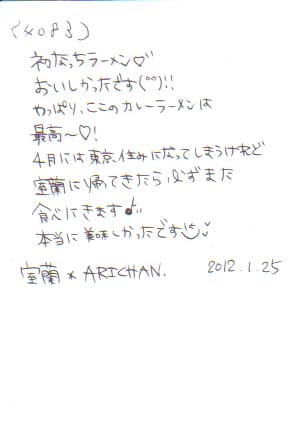 (4083)
初なっちラーメン♡
おいしかったです(°°)!!
やっぱり、ここのカレーラーメンは
最高～♡!
4月には東京住みになってしまうけれど
室蘭に帰ってきたら、必ずまた
食べにきます♪
本当に美味しかったです
室蘭 * ARICHAN. 2012.1.25